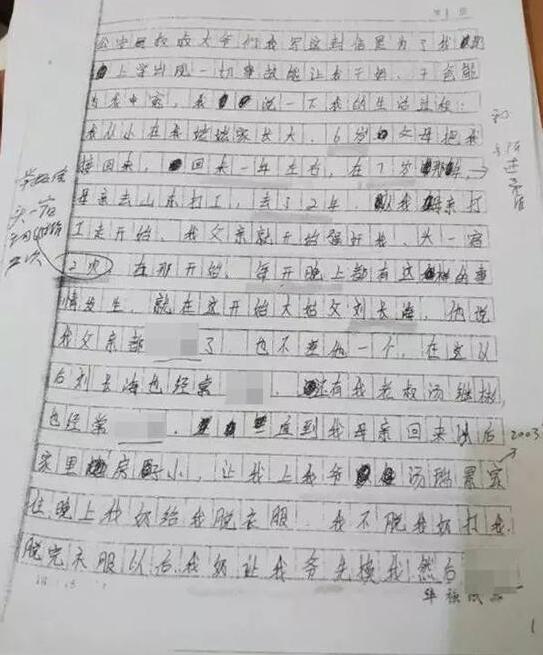 第1页
公安局叔叔大爷你我写这封信是为了我
上学出现一切事故能让我干妈、干爸能
为我申冤，我说一下我的生活过程：
我从小在我姥姥家长大，6岁父母把我
接回来，回来一年左右，在7岁那年，
母亲去山东打工，去了2年，从我母亲打
工走开始，我父亲就开始强奸我、头一宿
2次，在那开始，每天晚上都有这样的事
情发生，就在这开始大姑父刘长海，他说
我父亲都了，也不差他一个，在这以
后刘长海也经常，还有我老叔汤继彬，
也经常，一直到我母亲回来以后
2003
家里房子小，让我上我爷汤瑞景家
住晚上我奶给我脱衣服，我不脱我奶打我。
脱完衣服以后我奶让我爷先摸我然后
1